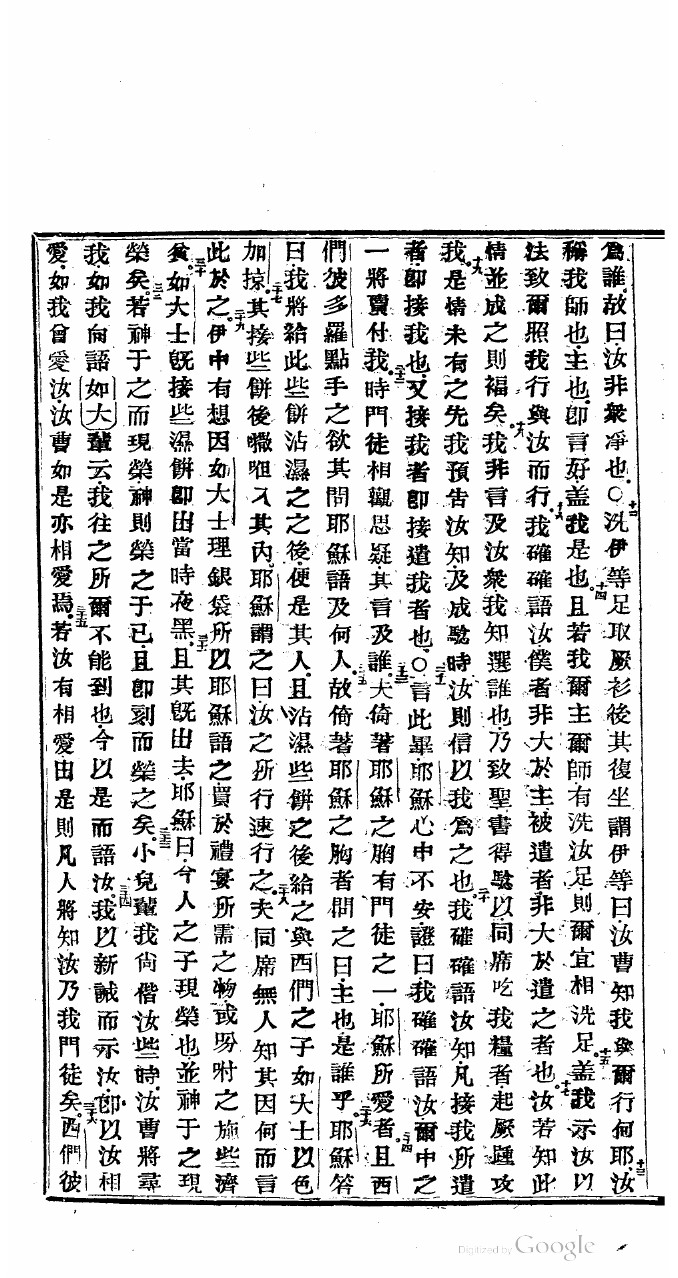 爲誰故曰汝非衆凈也○十二洗伊等足取厥衫後其復坐謂伊等曰汝曹知我與爾行何耶十三汝
稱我師也主也卽言好蓋我是也十四且若我爾主爾師有洗汝足則爾宜相洗足十五蓋我示汝以
法致爾照我行與汝而行十六我確確語汝僕者非大於主被遣者非大於遣之者也十七汝若知此
情並成之則福矣十八我非言及汝衆我知選誰也乃致聖書得騐以同席吃我糧者起厥踵攻
我十九是情未有之先我預告汝知及成騐時汝則信以我爲之也二十我確確語汝知凡接我所遣
者卽接我也又接我者卽接遣我者也○二十一言此畢耶穌心中不安證曰我確確語汝爾中之
一將賣付我二十二時門徒相觀思疑其言及誰二十三夫倚著耶穌之胸有門徒之一耶穌所愛者二十四且西
們彼多羅點手之欲其問耶穌語及何人二十五故倚著耶穌之胸者問之曰主也是誰乎二十六耶穌答
曰我將給此些餅沾濕之之後便是其人且沾濕些餅之後給之與西們之子如大士以色
加掠二十七其接些餅後𡃤呾入其內耶穌謂之曰汝之所行速行之二十八夫同席無人知其因何而言
此於之二十九伊中有想因如大士理銀袋所以耶穌語之買於禮宴所需之物或吩咐之施些濟
貧三十如大士旣接些濕餅卽出當時夜黑三十一且其旣出去耶穌曰今人之子現榮也並神于之現
榮矣三十二若神于之而現榮神則榮之于己且卽刻而榮之矣三十三小兒輩我尙偕汝些時汝曹將尋
我如我向語如大輩云我往之所爾不能到也今以是而語汝三十四我以新誡而示汝卽以汝相
愛如我曾愛汝汝曹如是亦相愛焉三十五若汝有相愛由是則凡人將知汝乃我門徒矣三十六西們彼
Digitized by Google